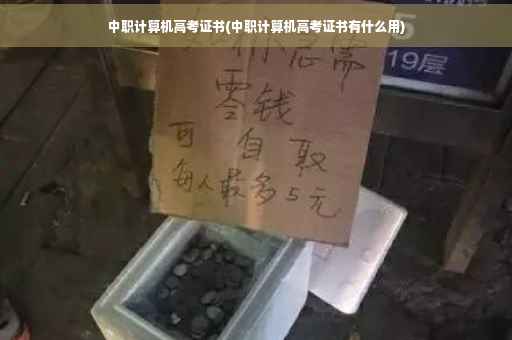 中职计算机高考证书(中职计算机高考证书有什么用)
你急需
零钱
可 自 取
每人最多5元
19层